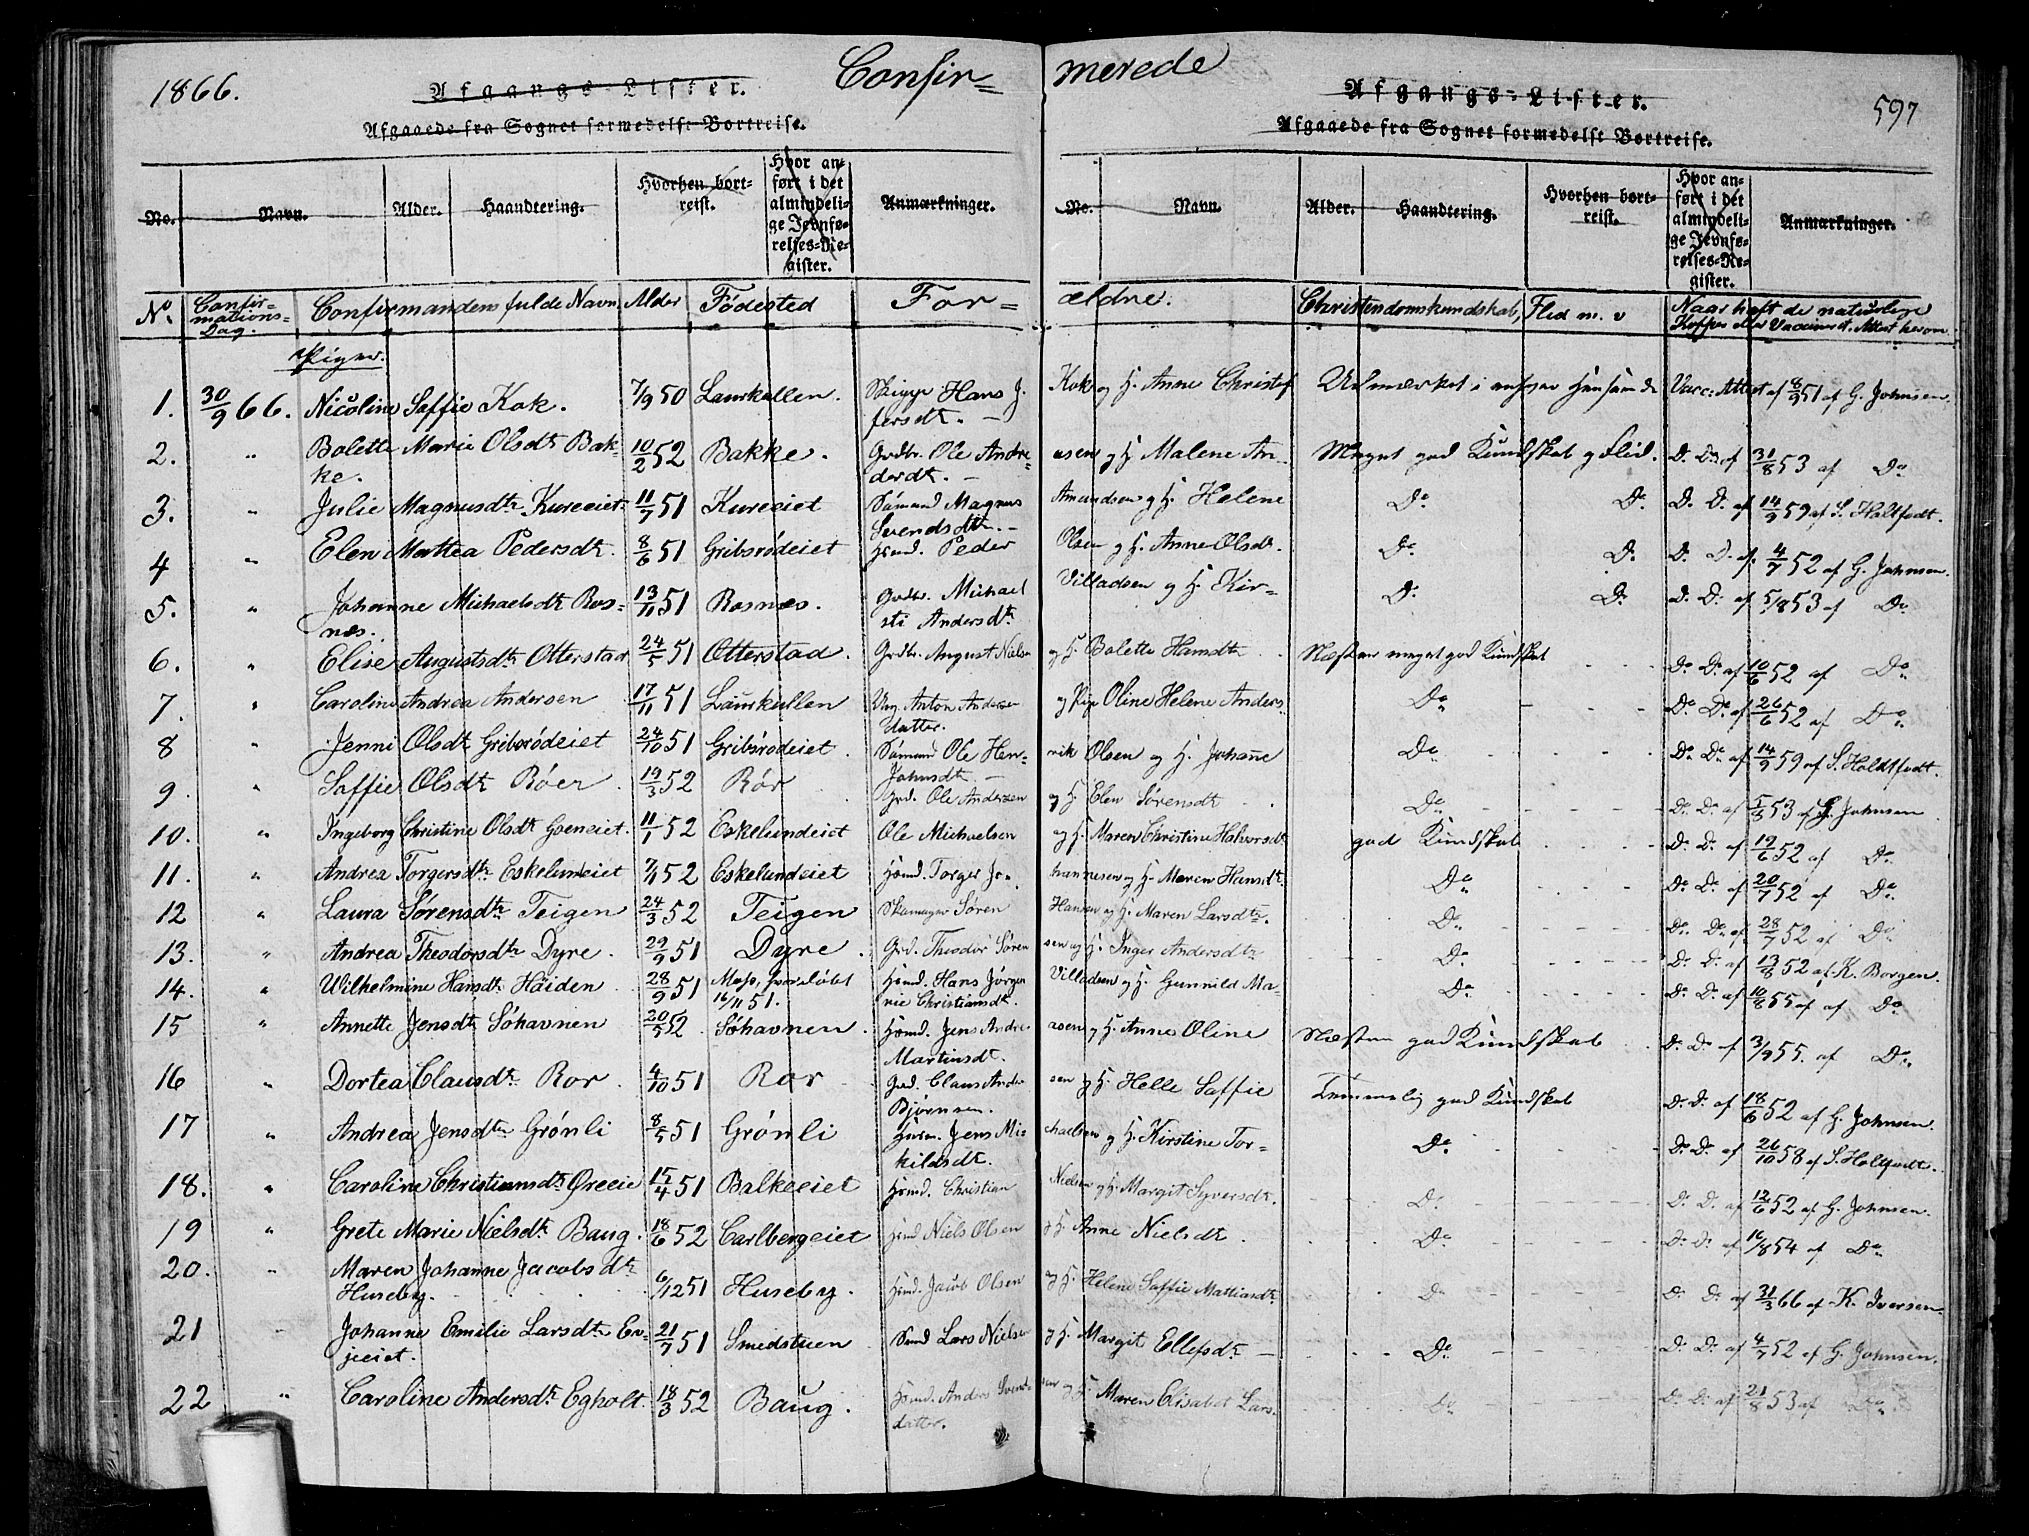 1866.
Confir-
merede
597
Afgangs-Lister.
Afgaaede fra Sognet formedelst Bortreise.
Afgangs-Lister.
Afgaaede fra Sognet formedelst Bortreise.
No. Navn. Alder. Haandtering. Hvorhen bortreist. Hvor anført i det almindelige Jevnførelses-Register. Anmærkninger.
No. Navn. Alder. Haandtering. Hvorhen bortreist. Hvor anført i det almindelige Jevnførelses-Register. Anmærkninger.
No. Confirmations-Dag. Confirmandens fulde Navn Alder Födested For- ældre. Christendomskundskab, Flid m. v Naar haft de naturlige Kopper eller Vaccineret. Attest herom
Piger.
1. 30/9 66. Nicoline Saffie Kok. 7/9 50 Laurkullen. Skipp. Hans J. Kok og H. Anne Christof Udmærket i enhver Henseende Vacc: Attest af 8/9 51 af G. Johnsen.
fersdt. —
2. " Bolette Marie Olsdt. Bak- 10/2 52 Bakke. Grdbr. Ole Andre- asen og H. Malene An- Meget god Kundskab og Flid. Do. Do. af 31/8 53 af Do
ke. dersdt. —
3. " Julie Magnusdtr Kureeiet 11/7 51 Kureeiet Sömand Magnus Amundsen og H. Helene Do Do. Do. Do. af 14/9 59 af S. Holtfodt.
Svendsdtr. —
4 " Elen Mattea Pedersdt. 8/6 51 Gribsrödeiet Hsmd. Peder Olsen og H. Anne Olsdt. Do Do. Do. Do. af 4/7 52 af G. Johnsen.
5. " Johanne Michaelsdt. Ros- 13/11 51 Rosnæs. Grdbr. Michael Villadsen og H. Kir- Do. Do. Do. Do. af 5/8 53 af Do
næs. sti Andersdt.
6. " Elise Augustsdtr Otterstad 24/5 51 Otterstad. Grdbr. August Nielsen og H. Bolette Hansdt. Næsten meget god Kundskab Do Do af 10/6 52 af Do.
7. " Caroline Andrea Andersen 17/11 51 Laurkullen Ung. Anton Andersen og Pige Oline Helene Anders Do Do. Do. af 26/6 52 af Do.
datter.
8 " Jenni Olsdt. Gribsrödeiet 24/10 51 Gribsrödeiet. Sömand Ole Hen- rik Olsen og H. Johanne Do Do Do af 14/9 59 af S. Holdtfodt.
Johnsdt. —
9. " Saffie Olsdt. Röer 19/3 52 Rör. Grd. Ole Andersen og H. Elen Sörensdt. Do Do. Do. af 5/8 53 af G. Johnsen
10. " Ingeborg Christine Olsdt. 11/1 52 Eskelundeiet Ole Michaelsen og H. Maren Christine Halvorsdt. god Kundskab Do. Do. af 19/6 52 af Do.
11. " Andrea Torgersdtr Eskelundeiet 7/1 52 Eskelundeiet Hsmd. Torger Jo- hannesen og H. Maren Hansdt. Do Do. Do. af 20/7 52 af Do.
12 " Laura Sörensdtr Teigen 24/3 52 Teigen Skomager Sören Hansen og H. Maren Larsdtr. Do. Do. Do. af 28/7 52 af Do.
13. " Andrea Theodorsdtr Dyre. 29/9 51 Dyre. Grd. Theodor Sören sen og H. Inger Andersdtr Do. Do. Do. af 13/8 52 af K. Borgen.
14. " Wilhelmine Hansdt. Häiden. 28/9 51 Moss, Hsmd. Hans Jörgen Villadsen og H. Gunnild Ma- Do. Do. Do. af 10/8 55 af Do.
16/11 51. rie Christiansdt.
15 " Annette Jensdt. Söhavnen 20/5 52 Söhavnen. Hsmd. Jens Andre- asen og H. Anne Oline Næsten god Kundskab Do. Do. af 3/9 55. af Do.
Martinsdt.
16 " Dortea Clausdtr Rör. 4/10 51 Rör Grd. Claus Ander sen og H. Helle Saffie Temmelig god Kundskab Do. Do. af 18/6 52 af G. Johnsen.
Bjørnsen.
17 " Andrea Jensdtr Grönli 8/5 51 Grönli Husm. Jens Mi- chaelsen og H. Kirstine Tor- Do. Do. Do. af 26/10 58 af S. Holtfodt.
kildsdt.
18. " Caroline Christiansdt. Öreeie 15/4 51 Balkeeiet Hsmd. Christian Nielsen og H. Margit Syversdt. Do. Do. Do. af 12/6 52 af G. Johnsen.
19 " Grete Marie Nielsdt. Baug. 18/6 52 Carlbergeiet Hsmd Niels Olsen og H. Anne Nielsdt. Do Do. Do. af 16/8 54 af Do
20. " Maren Johanne Jacobsdtr 6/12 51 Huseby. Hsmd. Jacob Olsen og H. Helene Saffie Mathiasdt. Do Do. Do. af 31/3 66 af K. Iversen.
Huseby.
21 " Johanne Emilie Larsdtr 21/7 51 Smedstuen Smd Lars Nielsen og H. Margit Ellefsdt. — Do Do. Do. af 4/7 52 af G. Johnsen.
jeeiet.
22 " Caroline Andersdt. Egholt. 18/3 52 Baug. Hsmd. Anders Svend- sen og H. Maren Elisabet Lars. Do Do. Do. af 21/8 53 af Do.
datter.